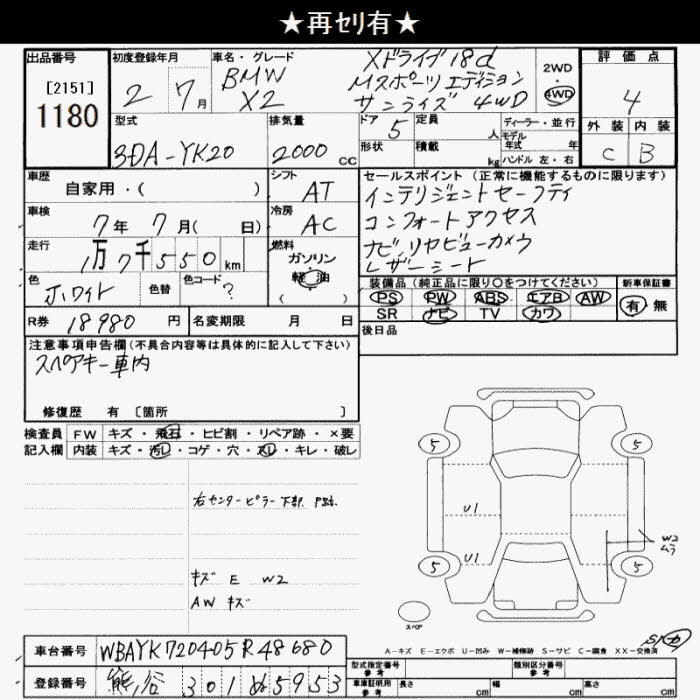 ★再セリ有★
出品番号
[2151]
1180
初度登録年月
2 7月
車名・グレード
BMW
X2
Xドライブ18d
Mスポーツエディション
サンライズ 4WD
2WD
4WD
評価点
4
外装 内装
C B
型式
3DA-YK20
排気量
2000cc
ドア
5
定員
人
形状
積載
kg
ディーラー・並行
モデル
年式 年
ハンドル 左・右
車歴
自家用・( )
シフト
AT
車検
7年7月( 日)
冷房
AC
走行
1万7千550km
燃料
ガソリン
軽油
( )
色
ホワイト
色替
色コード
?
R券 18980円
名変期限 月 日
セールスポイント(正常に機能するものに限ります)
インテリジェントセーフティ
コンフォートアクセス
ナビ、リヤビューカメラ
レザーシート
装備品(純正品に限り○をつけてください)
PS PW ABS エアB AW
SR ナビ TV カワ
新車保証書
有 無
後日品
注意事項申告欄(不具合内容等は具体的に記入して下さい)
スペアキー車内
修復歴 有 [箇所 ]
検査員
記入欄
FW キズ・飛石・ヒビ割・リペア跡・×要
内装 キズ・汚レ・コゲ・穴・スレ・キレ・破レ
右センターピラー下部
キズ E W2
AW キズ
5
5
5
5
U1
U1
W2
ムラ
スペア
A-キズ E-エクボ U-凹み W-補修跡 S-サビ C-腐食 XX-交換済
車台番号 WBAYK720405R48680
登録番号 熊谷 301 ぬ5953
型式指定番号
参考
類別区分番号
参考
車庫証明用
参考
長さ cm
幅 cm
高さ cm